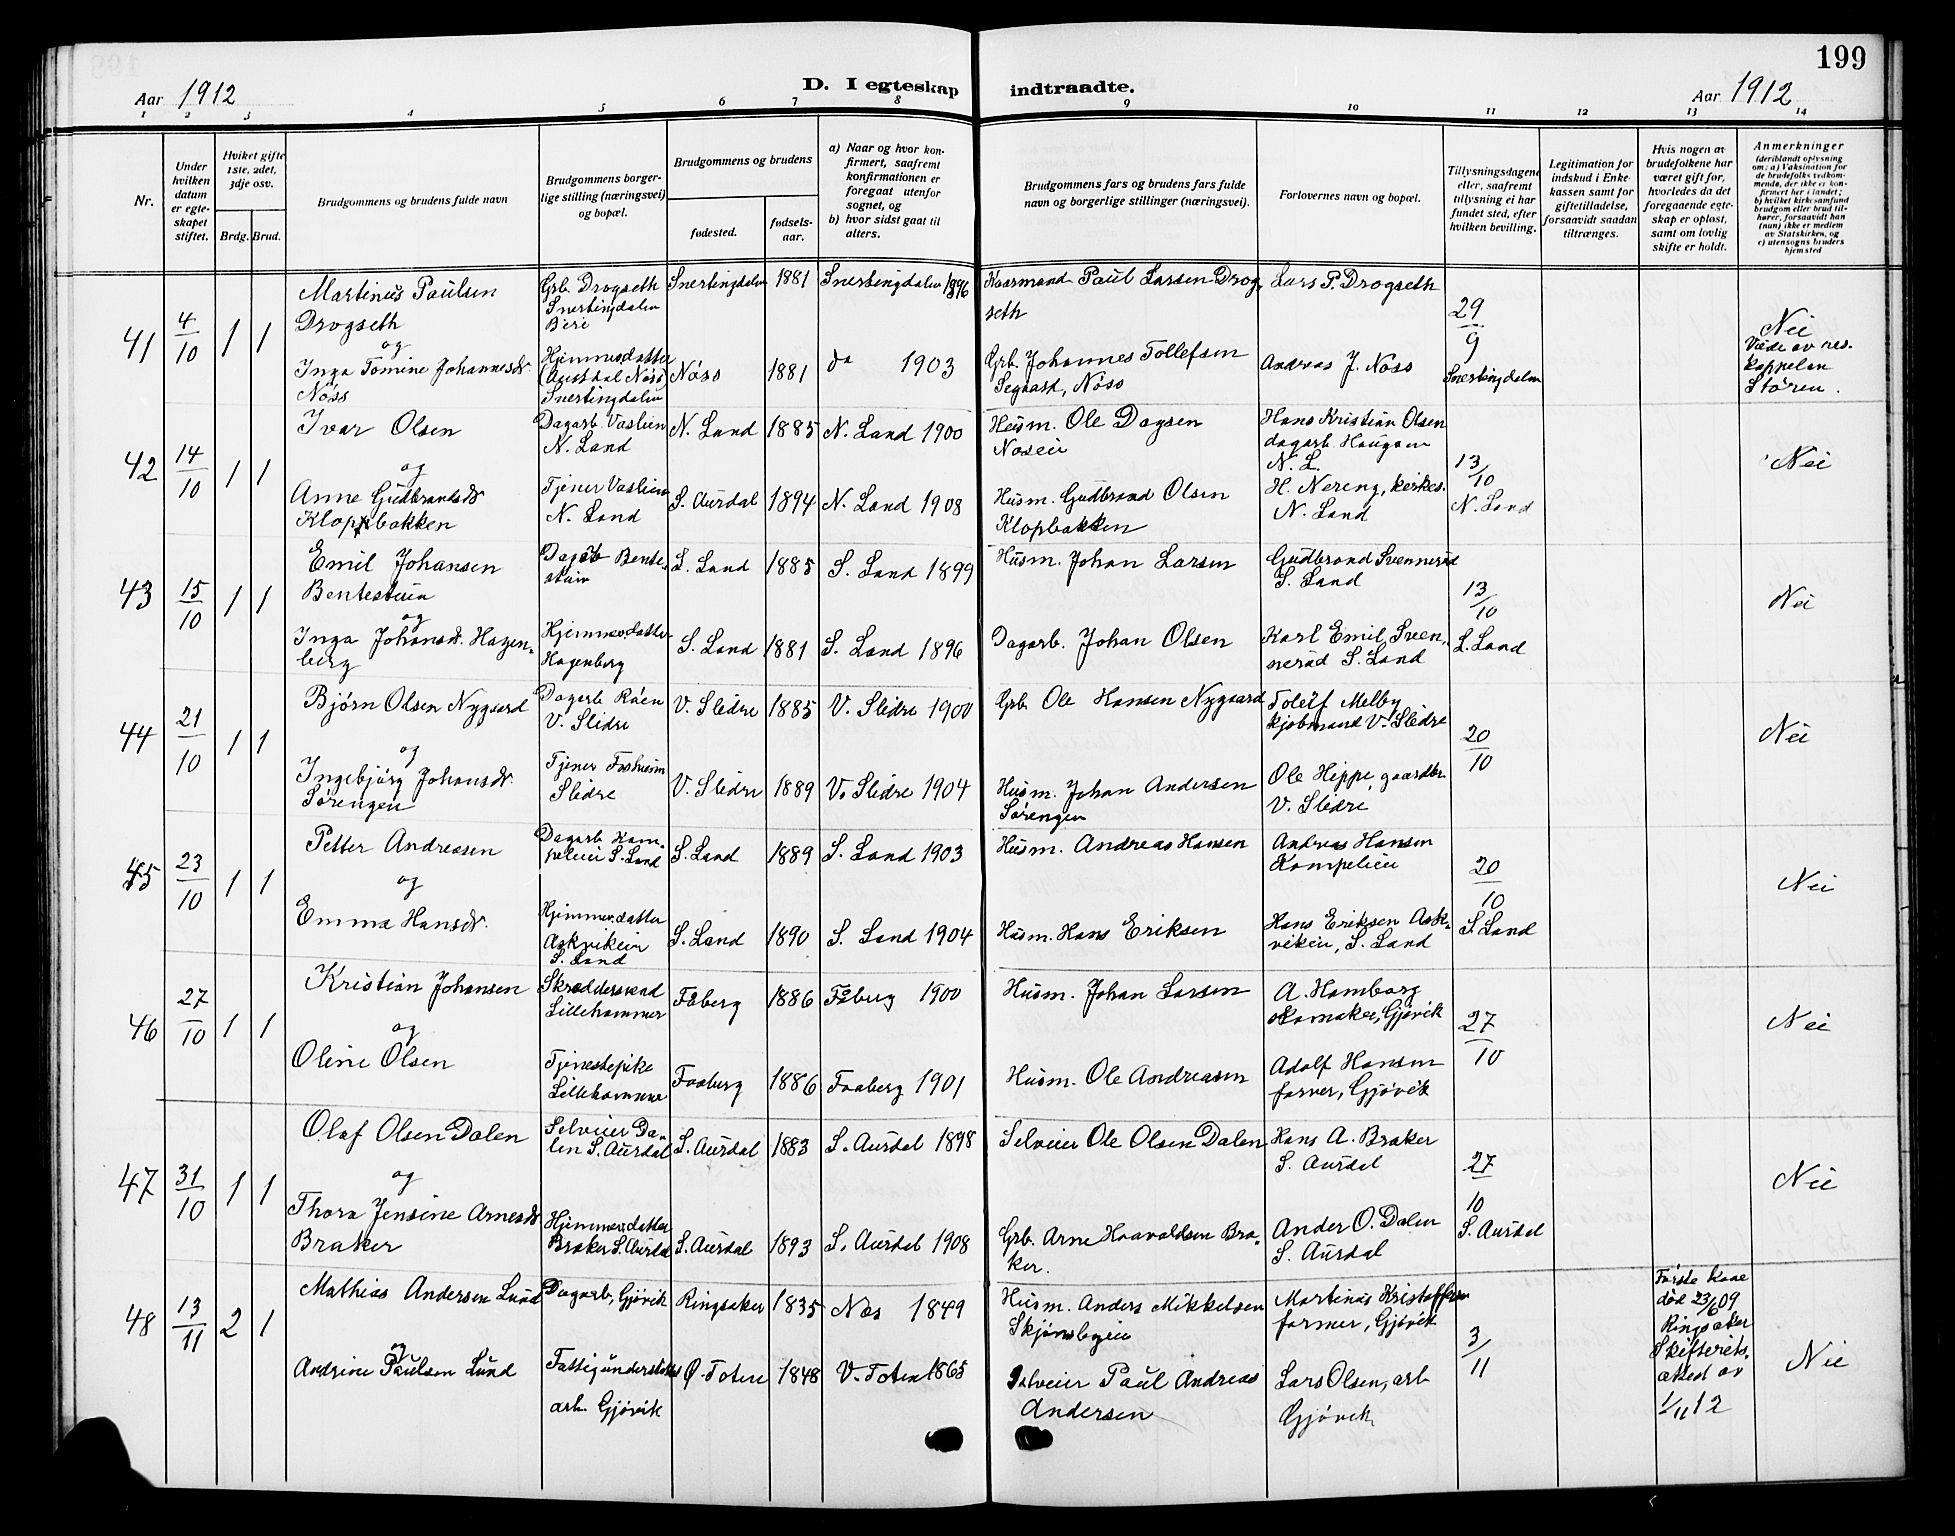 199
Aar 1912
D. I egteskap indtraadte.
Aar 1912
1 2 3 4 5 6 7 8 9 10 11 12 13 14
Nr.
Under hvilken datum er egteskapet stiftet.
Hvilket gifte 1ste, 2det, 3dje osv.
Brdg. Brud.
Brudgommens og brudens fulde navn
Brudgommens borgerlige stilling (næringsvei) og bopæl.
Brudgommens og brudens
fødested.
fødselsaar.
a) Naar og hvor konfirmert, saafremt konfirmationen er foregaat utenfor sognet, og
b) hvor sidst gaat til alters.
Brudgommens fars og brudens fars fulde navn og borgerlige stillinger (næringsvei).
Forlovernes navn og bopæl.
Tillysningsdagene eller, saafremt tillysning ei har fundet sted, efter hvilken bevilling.
Legitimation for indskud i Enkekassen samt for giftetilladelse, forsaavidt saadan tiltrænges.
Hvis nogen av brudefolkene har været gift før, hvorledes da det foregaaende egteskap er opløst, samt om lovlig skifte er holdt.
Anmerkninger
(deriblandt oplysning om: a) Vaksination for de brudefolks vedkommende, der ikke er konfirmert her i landet; b) hvilket kirkesamfund brudgom eller brud tilhører, forsaavidt han (hun) ikke er medlem av Statskirken, og c) utensogns bruders hjemsted
41 4/10 1 1
Martinus Paulsen
Drogseth
og
Inga Tomine Johannesdr.
Nöss
Grb. Drogseth
Snertingdalen
Biri
Hjemmedatter
Nöss)
Snertingdalen
Snertingdalen 1881 Snertingdalen 1896
Nöss 1881 da 1903
Kaarmand Paul Larsen Drog,
seth
Grb. Johannes Tollefsen
Segaard, Nöss
Lars P. Drogseth
Andreas J. Nöss
29
9
Snertingdalen
Nei
Viede av res.
kappelan
Stören.
42 14/10 1 1
Ivar Olsen
og
Anne Gudbrandsdr
Kloppbakken
Dagarb. Vaslien
N. Land
Tjener Vaslien
N. Land
N. Land 1885 N. Land 1900
S. Aurdal 1894 N. Land 1908
Husm. Ole Dagsen
Noseie
Husm. Gudbrand Olsen
Klopbakken
Hans Kristian Olsen
dagarb. Haugom
N. L.
H. Nereng, kirkes.
N. Land
13/10
N. Land
Nei
43 15/10 1 1
Emil Johansen
Bentestuen
og
Inga Johansdr. Hagen,
berg
Dagarb Bente,
stuen
Hjemmedatter
Hagenberg
S. Land 1885 S. Land 1899
S. Land 1881 S. Land 1896
Husm. Johan Larsen
Dagarb. Johan Olsen
Gudbrand Svennerud
S. Land
Karl Emil Sven,
nerud S. Land
13/10
S. Land
Nei
44 21/10 1 1
Bjørn Olsen Nygaard
og
Ingebjørg Johansdr.
Sørengen
Dagarb Röen
V. Slidre
Tjener Fosheim
Slidre
V. Slidre 1885 V. Slidre 1900
V. Slidre 1889 V. Slidre 1904
Grb. Ole Hansen Nygaard
Husm. Johan Andersen
Sørengen
Toleif Melby
kjøbmand V. Slidre
Ole Hippe, gaardbr.
V. Slidre
20
10
Nei
45 23/10 1 1
Petter Andreasen
og
Emma Hansdr.
Dagarb Kom,
pelien S. Land
Hjemmedatter
Askvikein
S. Land
S. Land 1889 S. Land 1903
S. Land 1890 S. Land 1904
Husm. Andreas Hansen
Husm. Hans Eriksen
Andreas Hansen
Kompelien
Hans Eriksen Ask,
vikein, S. Land
20
10
S. Land
Nei
46 27/10 1 1
Kristian Johansen
og
Oline Olsen
Skræddersvend
Lillehammer
Tjenestepike
Lillehammer
Faaberg 1886 Faaberg 1900
Faaberg 1886 Faaberg 1901
Husm. Johan Larsen
Husm. Ole Andreasen
A. Hamborg
skomaker, Gjøvik
Adolf Hansen
farver, Gjøvik
27
10
Nei
47 31/10 1 1
Olaf Olsen Dalen
og
Thora Jensine Arnesdr
Braker
Selveier Da,
len S. Aurdal
Hjemmedatter
Braker S. Aurdal
S. Aurdal 1883 S. Aurdal 1898
S. Aurdal 1893 S. Aurdal 1908
Selveier Ole Olsen Dalen
Grb. Arne Haavaldsen Bra,
ker.
Hans A. Braker
S. Aurdal
Ander O. Dalen
S. Aurdal
27
10
S. Aurdal
Nei
48 13/11 2 1
Mathias Andersen Lund
og
Andrine Paulsen Lund
Dagarb, Gjøvik
Fattigunderstöttes
arb. Gjøvik
Ringsaker 1835 Næs 1849
Ø. Toten 1848 V. Toten 1865
Husm. Anders Mikkelsen
Skjønsbyeie
Selveier Paul Andreas
Andersen
Martinus Kristoffersen
farmer, Gjøvik
Lars Olsen, arb
Gjøvik
3/11
Første kone
død 23/6 09
Ringsaker
Skifterets,
attest av
1/11 12
Nei